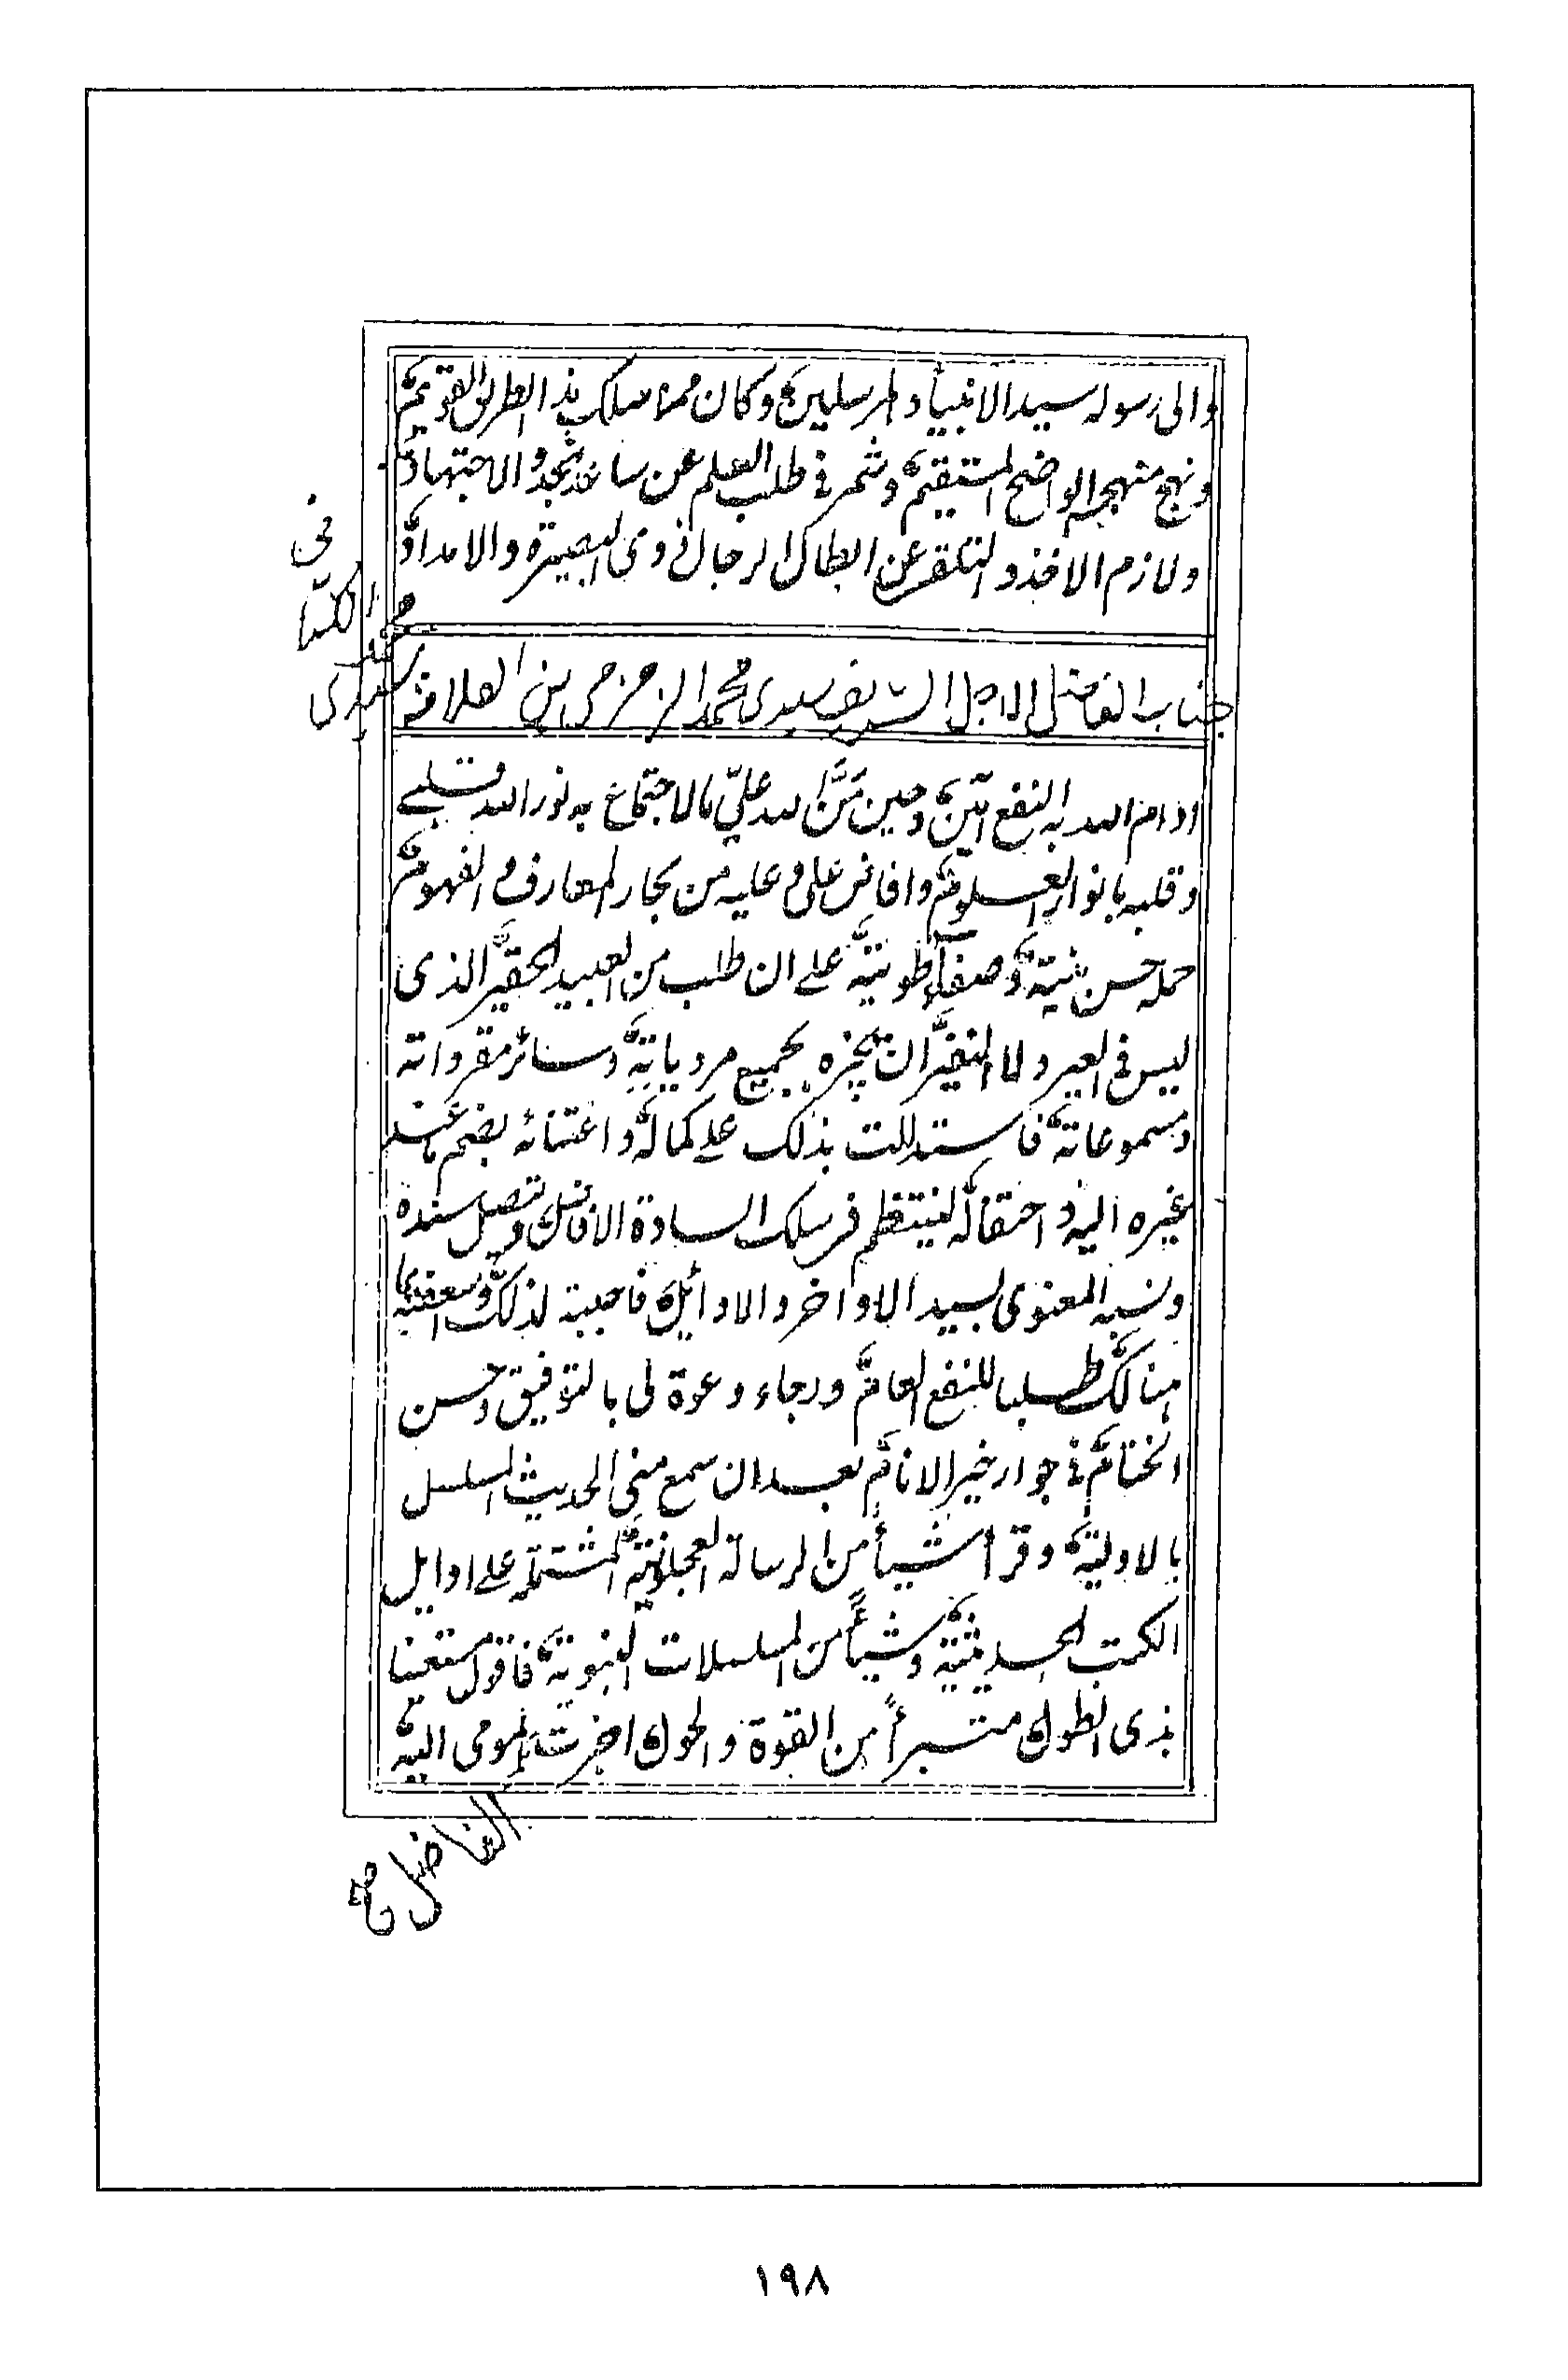 والى رسوله سيد الانبياء والمرسلين وكان ممن سلك هذا الطريق القويم
ونهج منهجه الواضح المستقيم وشمر في طلب العلم عن ساعد الجد والاجتهاد
ولازم الاخذ والتلقي عن ابطال الرجال ذوى البصيرة والامداد
جناب الفاضل الاجل الشريف سيدى محمد الزمزمى بن العلامة
سيدى محمد جعفر الكتاني
ادام الله به النفع آمين وحين مَنَّ الله عليّ بالاجتماع به نور الله قلبي
وقلبه بانوار العلوم وافاض علي وعليه من بحار المعارف والفهوم
حمله حسن نيته وصفاء طويته على ان طلب من العبيد الحقير الذى
ليس في العير ولا النفير ان يجيزه بجميع مروياته وسائر مقرواته
ومسموعاته فاستدللت بذلك على كماله واعتنائه بضم ما عند
غيره اليه واحتفاله لينتظم في سلك السادة الافاضل ويتصل سنده
ونسبه المعنوى لسيد الاواخر والاوائل فاجبته لذلك واسعفته بما
هنالك طلبا للنفع العام ورجاء دعوة لى بالتوفيق وحسن
الختام في جوار خير الانام بعد ان سمع مني الحديث المسلسل
بالاولية وقرأ شيأ من الرسالة العجلونية المشتملة على اوايل
الكتب الحديثية وشيأً من المسلسلات النبوية فاقول مستعينا
بذى الطول متبرأً من القوة والحول اجزت المومى اليه
الفاضل
١٩٨